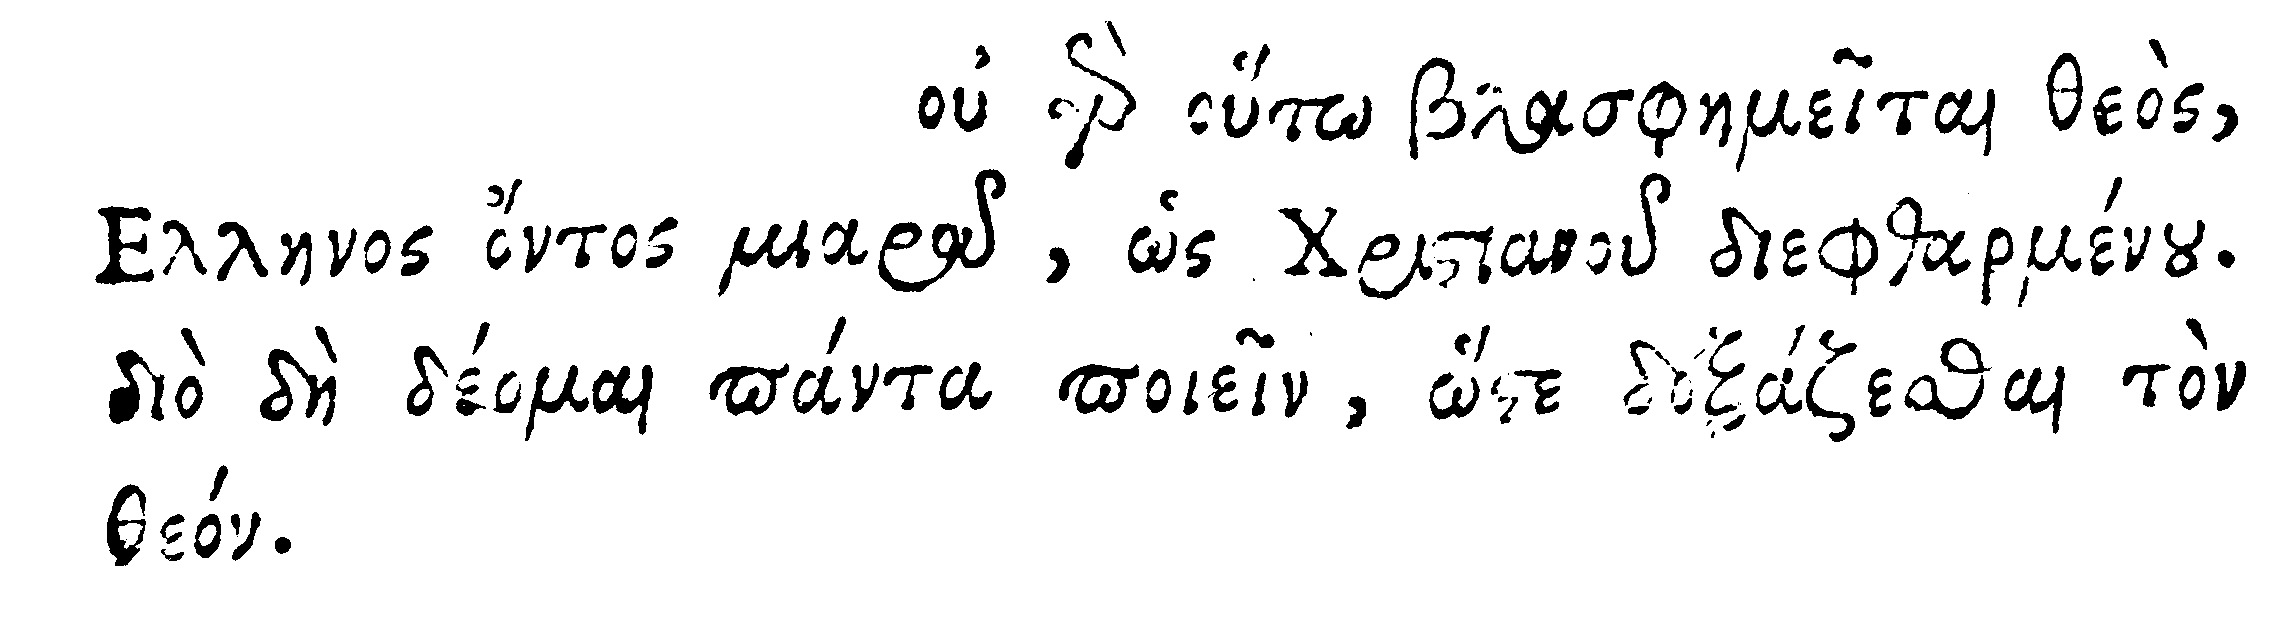 οὐ γὰρ οὕτω βλασφημεῖται θεὸς,
Ελληνος ὄντος μιαροῦ, ὡς Χριστιανοῦ διεφθαρμένου.
διὸ δὴ δέομαι πάντα ποιεῖν, ὥστε δοξάζεσθαι τὸν
θεόν.